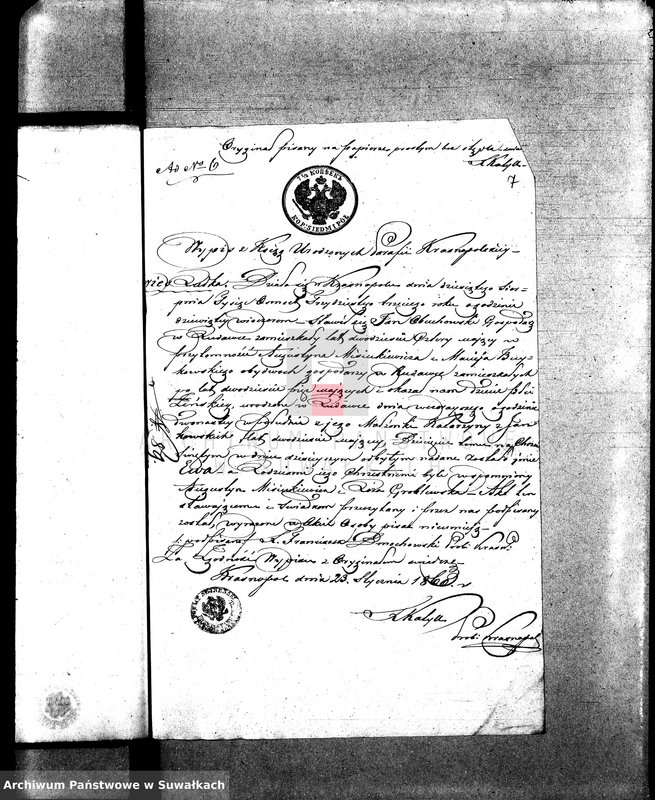 Oryginał pisany na papierze prostym bez stępla
Ad No 6
7
7½ KOPIEEK
KOP. SIEDM I PÓŁ
Wypis z Xiąg Urodzonych Parafii Krasnopolskiey
Rudka. Działo się w Krasnopolu dnia dziewiątego Sier-
pnia Tysiąc Ośmset Trzydziestego trzeciego roku o godzinie
dziewiątey wieczorem. Stawił się Jan Obuchowski Gospodarz
w Rudawce zamieszkały lat dwadzieścia Cztery mający w
przytomności Augustyna Misiukiewicza i Macieja Buy-
kowskiego obydwoch gospodarzy w Rudawce zamieszkałych
po lat dwadzieścia pięć mających i okazał nam dziecię płci
Żeńskiey urodzone w Rudawce dnia wczorayszego o godzinie
dwunastey w południe z jego Małżonki Katarzyny z Jan
kowskich lat dwadzieścia mającey. Dziecięciu temu na Chrzcie
świętym w dniu dzisieyszym odbytym nadane zostało imie
Ewa, a Rodzicami jego Chrzestnemi byli wspomniony
Augustyn Misiukiewicz i Róża Groblewska. Akt ten
stawającemu i świadkom przeczytany i przez nas podpisany
został, wyrażone w Akcie Osoby pisać nieumieją
podpisano X. Franciszek Prob: Kras:
Za Zgodność Wypisu z Oryginałem świadczę
Krasnopol dnia 23 Stycznia 186
Prob: Krasnopol
Archiwum Państwowe w Suwałkach